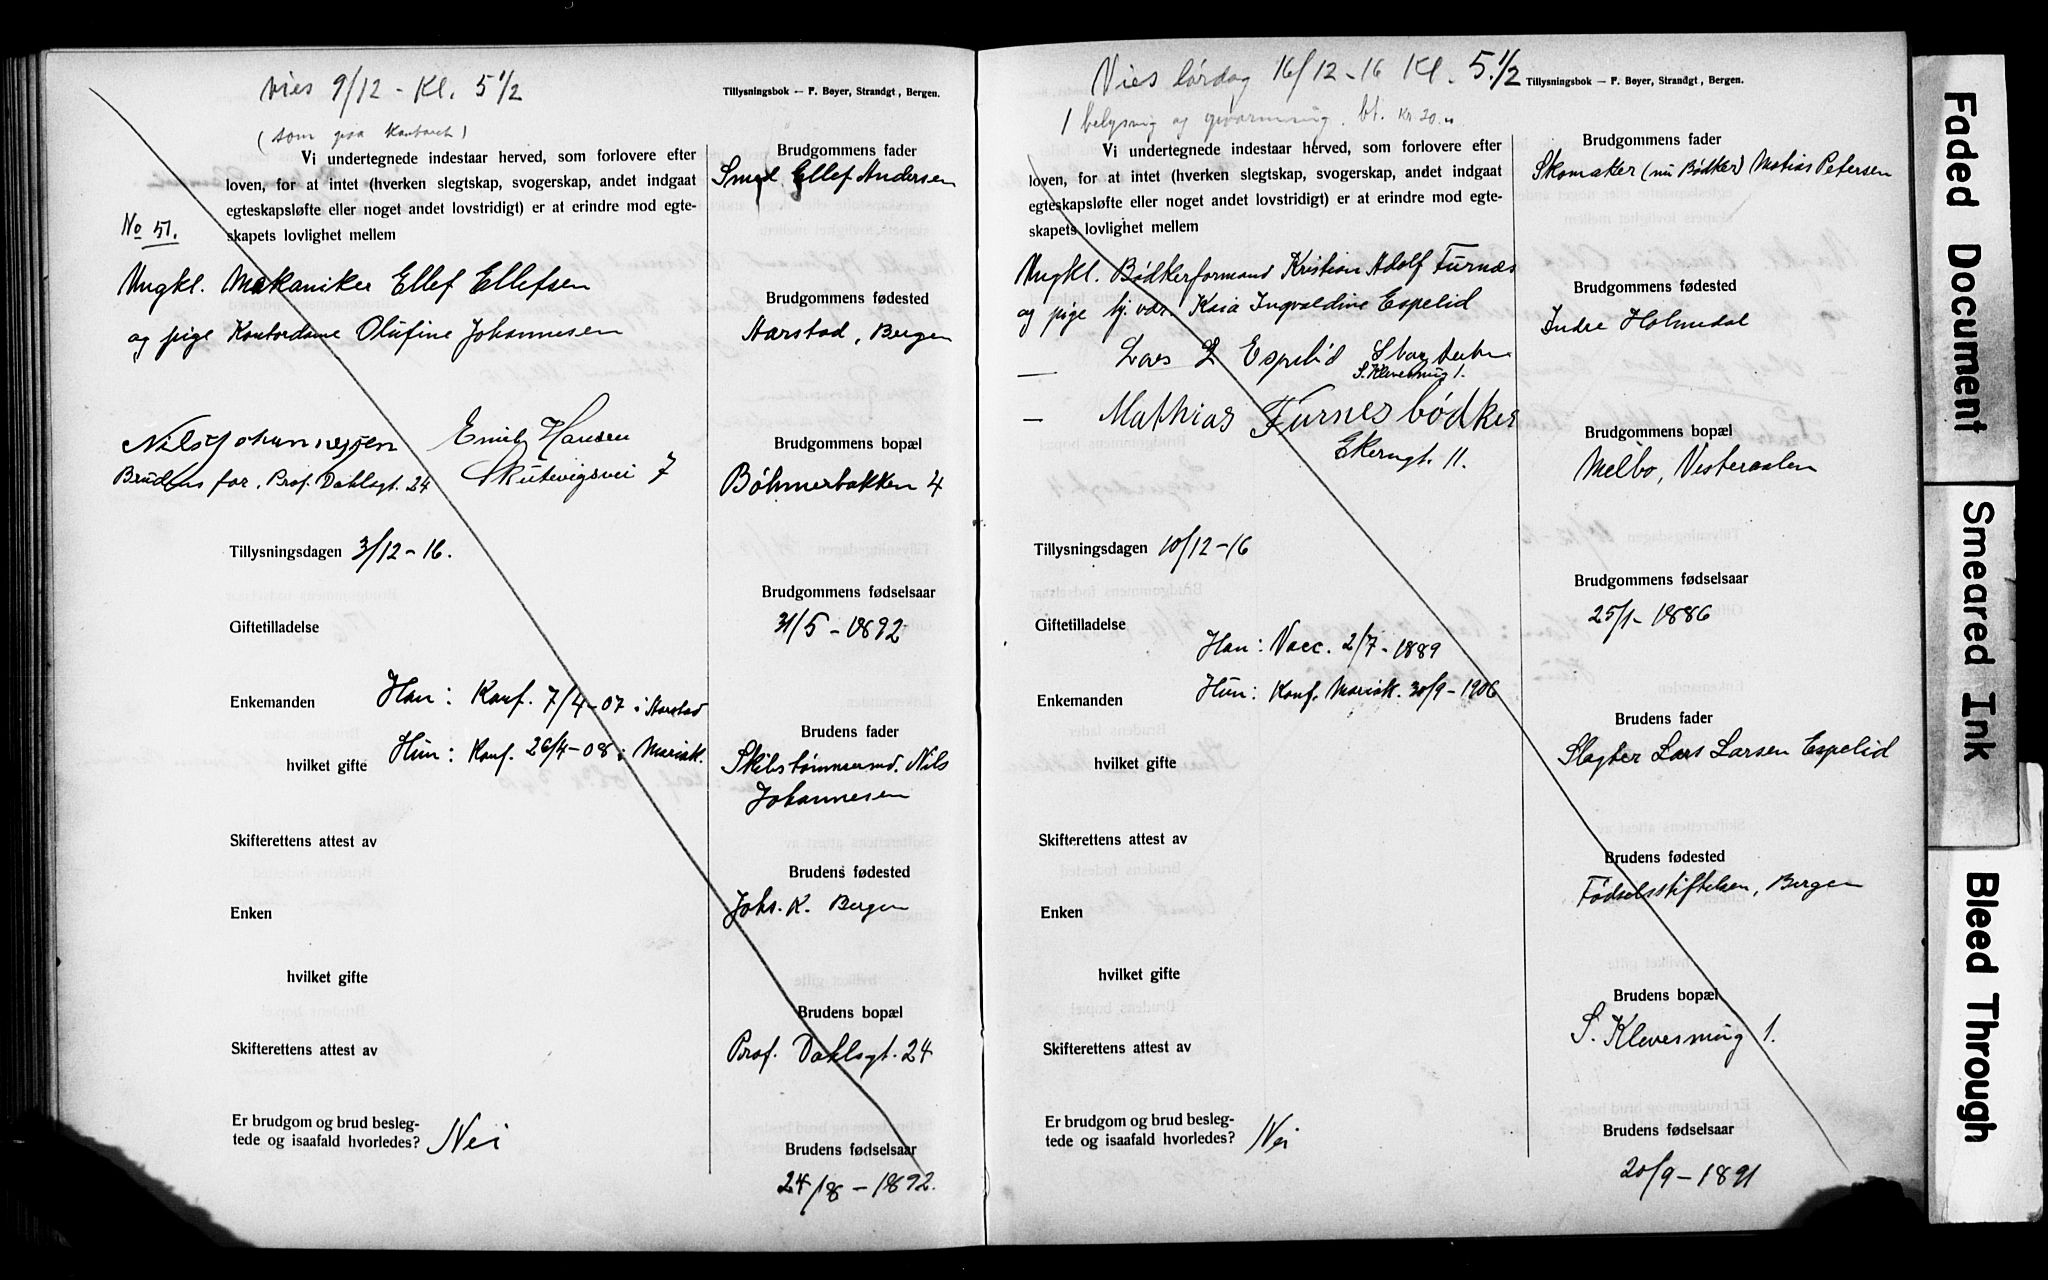 Vies 9/12 - Kl. 5 1/2
Tillysningsbok — F. Bøyer, Strandgt, Bergen.
(som paa Kontoret)
Vi undertegnede indestaar herved, som forlovere efter
loven, for at intet (hverken slegtskap, svogerskap, andet indgaat
egteskapsløfte eller noget andet lovstridigt) er at erindre mod egte-
skapets lovlighet mellem
No 51.
Ungkl. Mekaniker Ellef Ellefsen
og pige Kontordame Olufine Johannesen
Nils Johannessen Emil Hansen
Brudens far, Prof. Dahlsgt. 24 Skutevigsvei 7
Tillysningsdagen 3/12 - 16.
Giftetilladelse
Enkemanden Han: Konf. 7/4 - 07 i Aarstad
hvilket gifte Hun: Konf. 26/4 - 08 i Mariak.
Skifterettens attest av
Enken
hvilket gifte
Skifterettens attest av
Er brudgom og brud besleg-
tede og isaafald hvorledes? Nei
Brudgommens fader
Smed Ellef Andersen
Brudgommens fødested
Aarstad, Bergen
Brudgommens bopæl
Bøhmerbakken 4
Brudgommens fødselsaar
31/5 - 1892
Brudens fader
Skibstømmermd. Nils
Johannesen
Brudens fødested
Johs. K. Bergen
Brudens bopæl
Prof. Dahlsgt. 24
Brudens fødselsaar
24/8 - 1892.
Vies lørdag 16/12 - 16 Kl. 5 1/2
Tillysningsbok — F. Bøyer, Strandgt, Bergen.
/ belysning og opvarmning. bt. Kr. 20.
Vi undertegnede indestaar herved, som forlovere efter
loven, for at intet (hverken slegtskap, svogerskap, andet indgaat
egteskapsløfte eller noget andet lovstridigt) er at erindre mod egte-
skapets lovlighet mellem
Ungkl. Bødkerformand Kristian Adolf Furnæs
og pige hj. vær. Kaia Ingvaldine Espelid
— Lars L Espelid
S. Klevesmug 1.
— Mathias Furnes bødker
Ekerngt. 11.
Tillysningsdagen 10/12 - 16
Giftetilladelse
Han: Vacc. 2/7 - 1889
Enkemanden Hun: Konf. Mariak. 30/9 - 1906
hvilket gifte
Skifterettens attest av
Enken
hvilket gifte
Skifterettens attest av
Er brudgom og brud besleg-
tede og isaafald hvorledes? Nei
Brudgommens fader
Skomaker (nu Bødker) Matias Petersen
Brudgommens fødested
Indre Holmedal
Brudgommens bopæl
Melbo, Vesteraalen
Brudgommens fødselsaar
25/1 - 1886
Brudens fader
Slagter Lars Larsen Espelid
Brudens fødested
Fødselsstiftelsen, Bergen
Brudens bopæl
S. Klevesmug 1.
Brudens fødselsaar
20/9 - 1891
Faded Document
Smeared Ink
Bleed Through